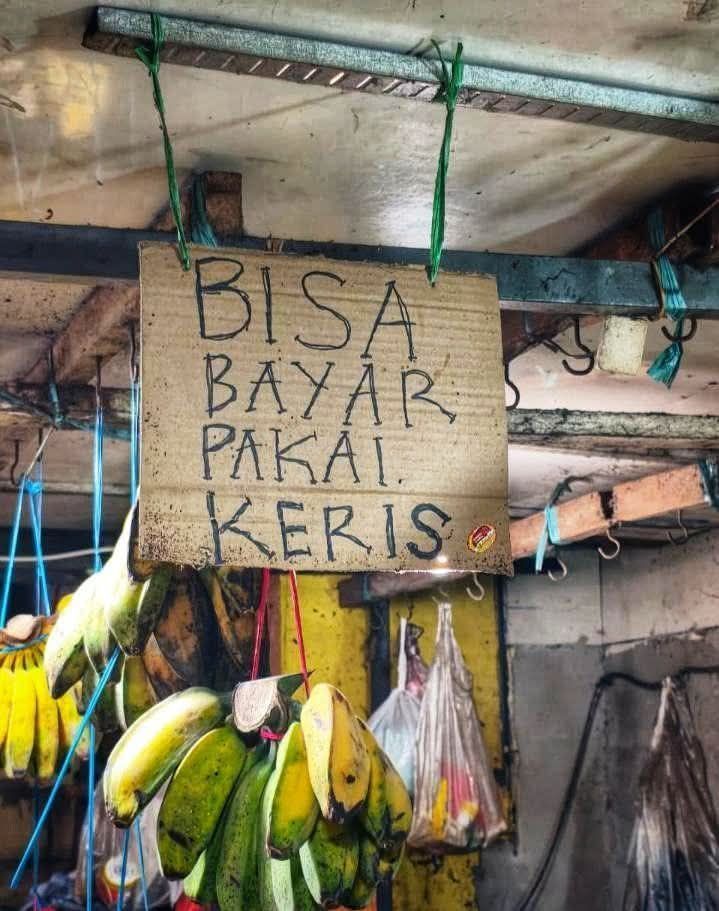 BISA
BAYAR
PAKAI.
KERIS